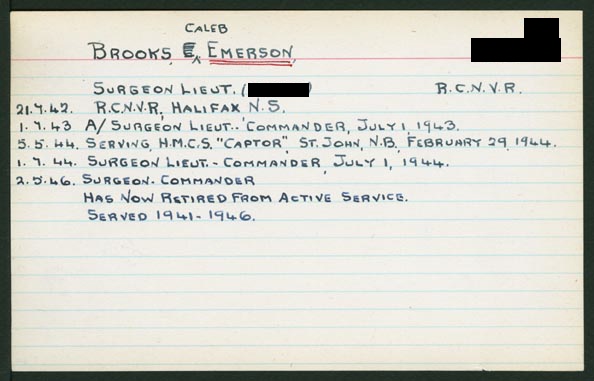 CALEB
BROOKS, E. EMERSON
SURGEON LIEUT. ( ) R.C.N.V.R.
21.7.42. R.C.N.V.R, HALIFAX N.S.
1.7.43 A/SURGEON LIEUT.-COMMANDER, JULY 1, 1943.
5.5.44. SERVING, H.M.C.S. "CAPTOR", ST. JOHN, N.B, FEBRUARY 29, 1944.
1.7.44. SURGEON LIEUT.-COMMANDER, JULY 1, 1944.
2.5.46. SURGEON-COMMANDER
HAS NOW RETIRED FROM ACTIVE SERVICE.
SERVED 1941-1946.